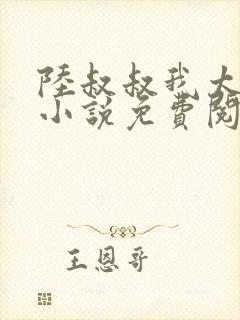 陸叔叔我大
小說免費閱
王恩哥